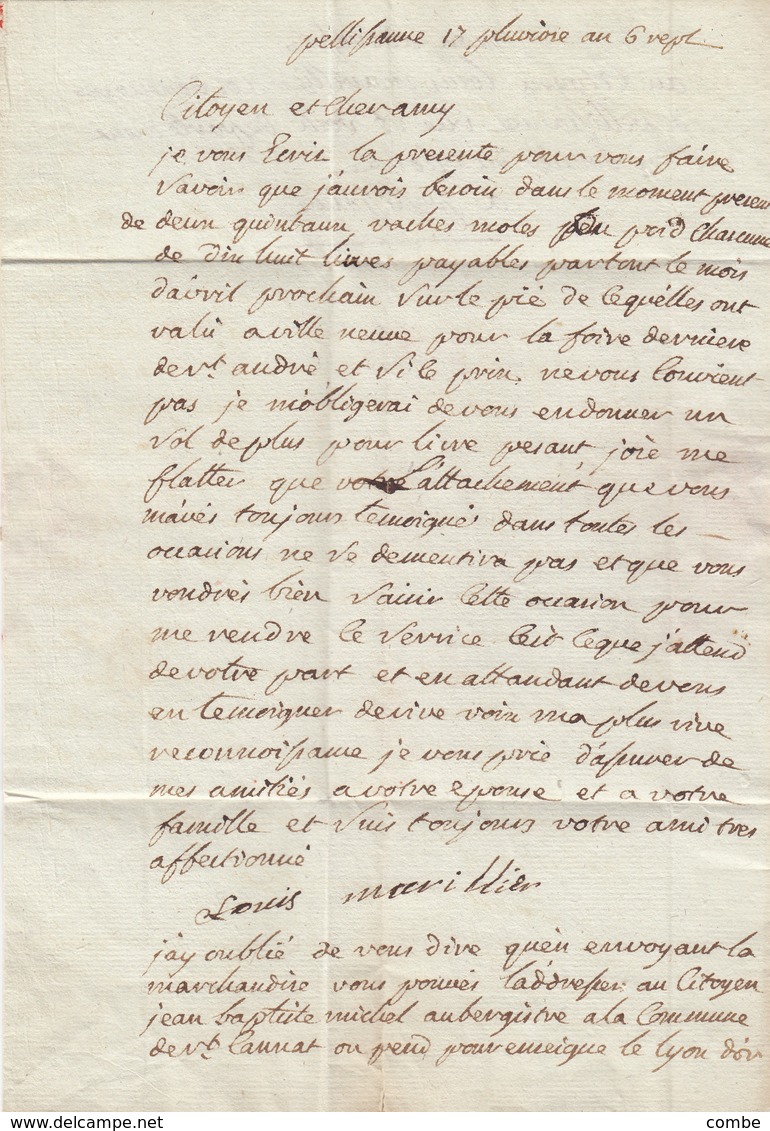 pellissanne 17 pluviose an 6 repl
Citoyen et cher amy
je vous Ecrit la presente pour vous faire
savoir que j'auvois besoin dans le moment present
de deux quintaux vaches moles du poid chacunne
de dix huit livres payables partout le mois
d'avril prochain sur le pié de le quélles ont
valû a ville neuve pour la foire derniere
de st andré et si le prix ne vous Convient
pas je m'obligerai de vous en donner un
sol de plus pour livre pesant j'oze me
flatter que l'attachement que vous
m'avés toujours temoignés dans toutes les
occasions ne se dementira pas et que vous
voudrés bién saisir Cette occasion pour
me rendre le service C'est Ce que j'attend
de votre part et en attandant de vous
en temoigner de vive voix ma plus vive
reconnoissance je vous prie d'assurer de
mes amitiés a votre epouse et a votre
famille et suis toujours votre ami tres
affectionné
Louis marillier
j'ay oublié de vous dire qu'en envoyant la
marchandise vous pouvés l'addresser au Citoyen
jean baptiste michel aubergistre a la Commune
de st Cannat ou pend pour enseigne le lyon d'or
combe